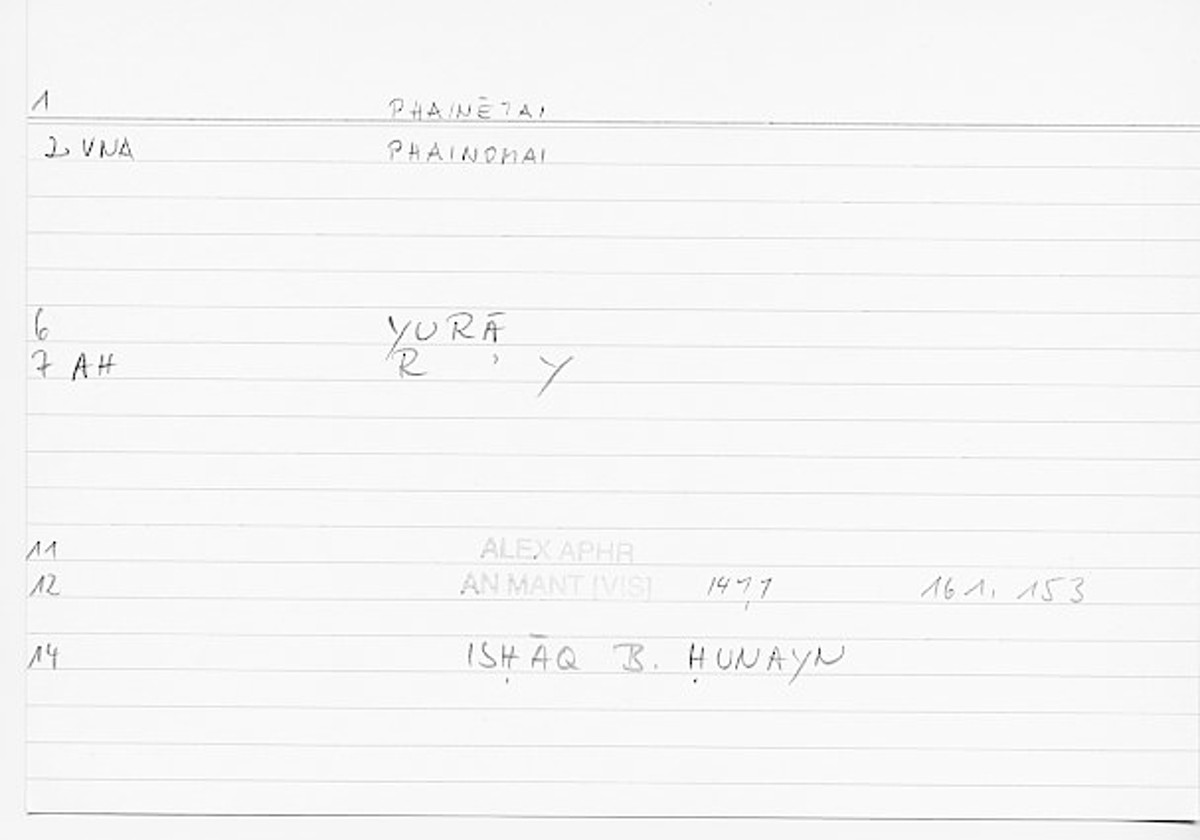 1 PHAINĒTAI
2 VNA PHAINOMAI
6 YURĀ
7 AH R ʾ Y
11 ALEX APHR
12 AN MANT [VIS] 161, 153
14 ISḤĀQ B. ḤUNAYN